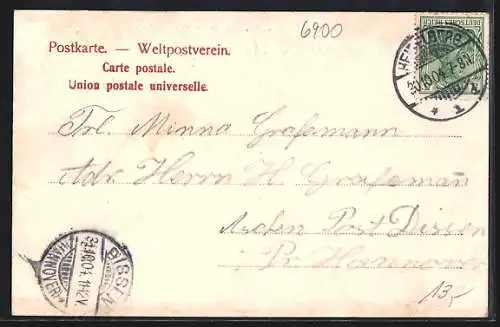 6900
Postkarte. — Weltpostverein.
Carte postale.
Union postale universelle.
DEUTSCHES REICH
HEIDELBERG
Frl. Minna Grafemann
Adr. Herrn H Grafeman
Aschen Post Dissen
Pr. Hannover
DISSEN
HANNOVER
13,-